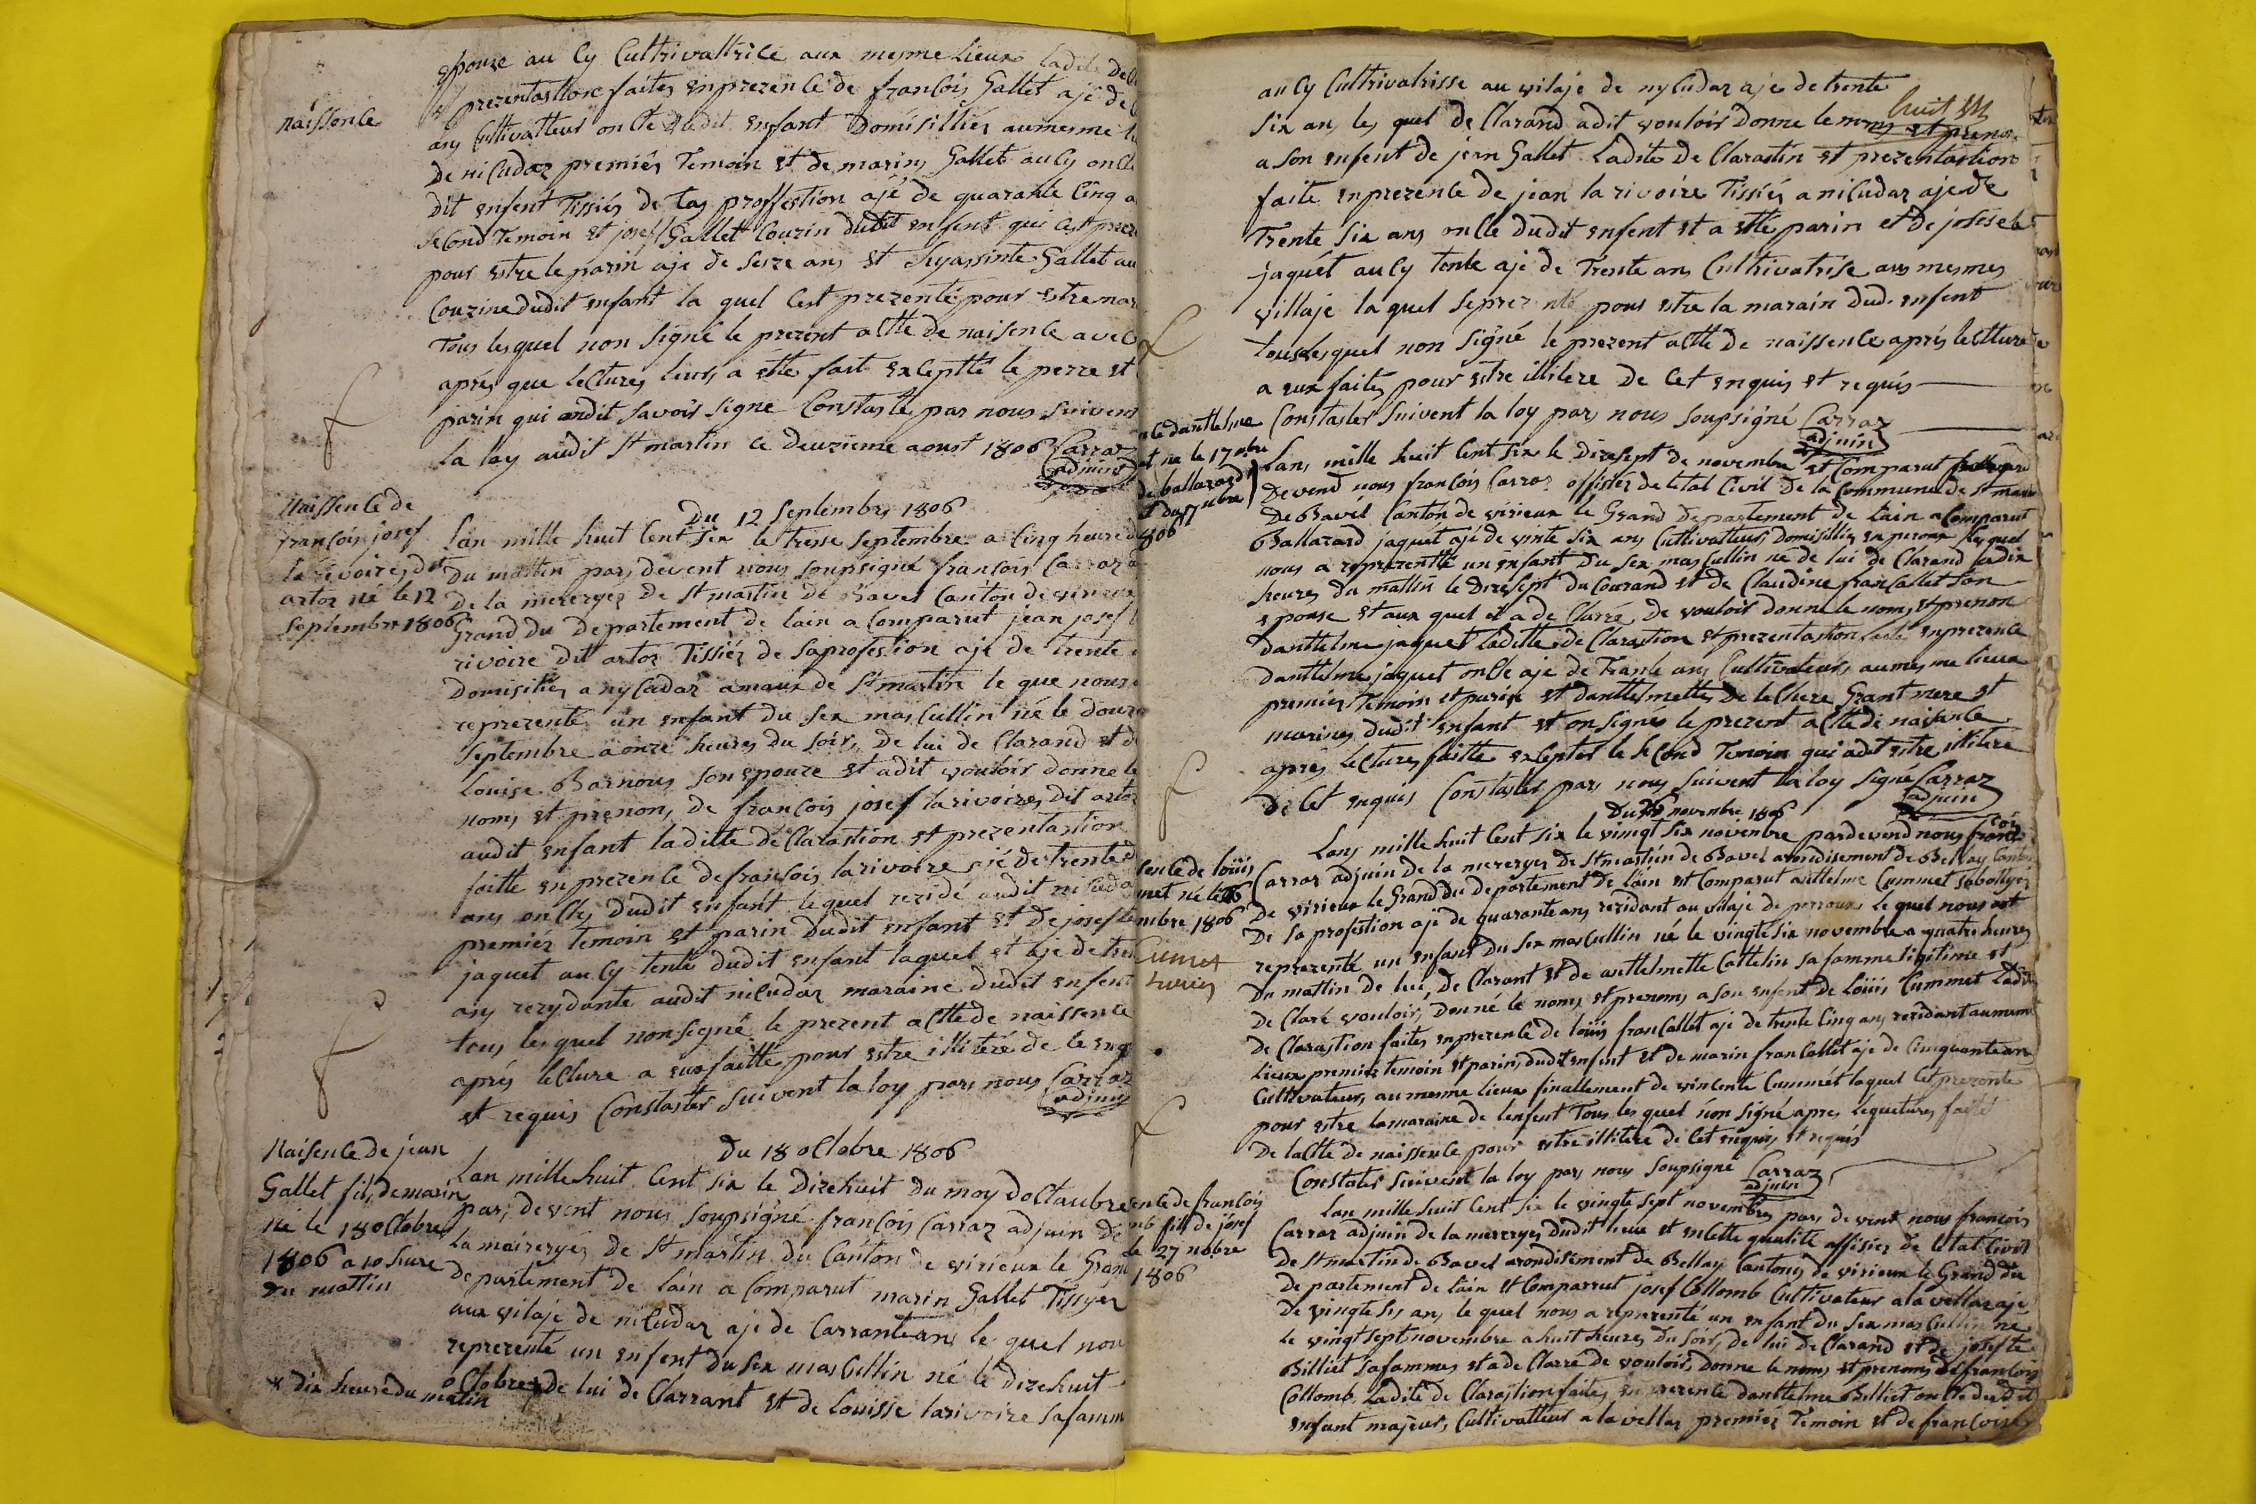 naissence
epouze au Cy Cultrivattrice aux mesme Lieux ladite de
et prezentastion faites enprezence de francois Gallet ajé de
ans Cultivatteur oncle dudit enfant Domisilliez aumesme
De niCudaz premiér Temoin et de marin Gallet auCy oncle
dit enfent Tissiéz de Sas proffestion ajé de quarante Cinq a
seCond Temoin et josef Gallet Couzin dudit enfent qui C'est prez
pour estre le parin aje de seize ans et hyassinte Gallet au
Couzine dudit enfant la quel Cest prezenté pour estre mar
Tous lesquel non signé le prezent aCtte de naisence avec
aprés que leCtures leurs a étte fait exCeptté le perre et
parin qui ondit savoir signe Constaste par nous suivent
la loy audit St martin ce deuzieme aoust 1806 Carraz
adjuint
Naissence de
francois josef
larivoire, dit
artoz né le 12
Septembre 1806
Du 12 Septembre 1806
Lan mille huit Cent six le tresse septembre a Cinq heure d
Du mattin par devent nous soupsigné francois Carraz a
De la mereryez de St martin de Bavel Canton de virieux
Grand du Departement de lain a Comparut jean josef l
rivoire dit artoz Tissiéz de saprofestion aje de trente
Domisiliez a nyCudaz amaux de St martin le que nous
reprezenté un enfant du sex masCullin né le douze
septembre a onze heures du soir, de lui de Clarand et d
Louise Barnous son epouze et adit vouloir donne le
noms et prenons de francois josef larivoires dit artoz
audit enfant laditte déClarastion et prezentastion
faitte enprezence de francois larivoire ajé de trente
ans onCles dudit enfant lequel rezidé audit niCuda
premiéz temoin et parin dudit enfant et de josefte
jaquet auCy tente dudit enfant laquel et aje de tren
ans rezydante audit niCudaz maraine dudit enfent
tous lesquel nonsigné le prezent aCtte de naissence
aprés leCture a eux faitte pour estre illitéré de Ce enq
et requis Constaster suivent la loy par nous Carraz
adjuin
Naisence de jean
Gallet fils de marin
né le 18 oCtobre
1806 a 10 hure
du mattin
Du 18 oCtobre 1806
Lan mille huit Cent six le Dizehuit du moy doCtaubre
par, devent nous soupsigné francois Carraz adjuin de
la maireryéz de St martin du Canton de virieux le Gran
Departement de lain a Comparut marin Gallet Tissyer
aux vilaje de niCudaz aje de Carrante ans le quel nou
reprezenté un enfent du sex masCullin né le dizehuit
oCtobre de lui de Clarrant et de Louisse larivoire safamm
* dix heure du matin
auCy Cultrivatrisse au vilaje de nyCudaz aje de trente
huit
six an, les quel de Clarand adit vouloir donne le noms et prenon
a son enfent de jean Gallet Ladite de Clarastin et prezentastion
faite enprezence de jean larivoire Tissiéz a niCudaz aje de
Trente six ans onCle dudit enfent et a etté parin et de joséfte
jaquét auCy tente ajé de Trente ans Cultrivatrise aux mesmes
villaje laquel seprezenté pour estre la marain dud. enfent
tous lesquel non signé le prezent aCtte de naissence aprés leCtture
a eux faites pour estre illitere de Cet enquis et requis
Constaster suivent la loy par nous soupsigné Carraz
adjuin
danthelme
né le 17 nbre
de ballazard
et du 17 nbre
1806
Lans mille huit Cent six le dizesept de novembre et Comparut
Devend nous francois Carraz offister de letat Civil de la Commune de St martin
De Bavél Canton de virieux le Grand departement de Lain a Comparut
Ballazard jaquét ajé de vinte six ans Cultivatteur Domisilliéz en perroux lequel
nous a reprezentté un enfant Du sex masCullin né de lui de Clarand a dix
heures du mattin le Dizesept du Courand et de Claudine franCallet son
epouse et aux quel il a de Claré de vouloir donne le noms et prenon
danttelme jaquet laditte de Clarastion et prezentastion faite enprezence
danttelme jaquet onCle aje de Trante ans Cultivateurs aumesme lieux
premier Temoin et parin et danttelmette De leCluze Grant mere et
marines dudit enfant et on signés le prezent aCtte de naisence
aprés leCtures faitte exCepter le seCond Temoin qui adit estre illitere
de Cet enquis Constaster par nous suivent la loy signé Carraz
adjuin
Du 26 novembre 1806
sence de Loüis
met né le 26
mbre 1806
Cumet
Lans mille huit Cent six le vinngt six novenbre pardevend nous francois
Carraz adjuin de la mereryez de St martin de Bavel arondisement de Bellay Canton
De virieux le Grand du departement de Lain et Comparut anttelme Cummet sabottyez
De sa profestion aje de quarante ans rezidant au vilaje de perroux le quel nous at
reprezenté un enfant du sex masCullin né le vingte six novembre a quatre heures
Du mattin de lui, de Clarant et de anttelmette Cattelin sa famme ligitime et
de Claré vouloir, donné le noms et prenoms a son enfent de Loüis Cummet Ladite
de Clarastion faites enprezence de Loüis franCallet aje de trente Cinq ans rezidant aumeme
Lieux premier temoin et parin dudit enfent et de marin franCallet aje de Cinquante an
Cultivateur, au mesme lieux finallement de vincente Cummét laquel Cet prezente
pour estre lamaraine de lenfent Tous les quel non signé apres lequtures faité
De laCtte de naissence pour estre illitere de Cet enquis et requis
Constater suivent la loy par nous soupsigné Carraz
adjuin
ence de francois
mb fils de josef
le 27 nobre
1806
Lan mille huit Cent six le vingte sept novembres par devent nous francois
Carraz adjuin de la mereryez dudit lieux et enCette qualité affisiez de letat Civil
de St martin de Bavel arondisement de Bellay Canton de virieux le Grand du
departement de Lain et Comparrut josef Collomb Cultivateur a la vellaz aje
de vingte sis ans le quel nous a reprezenté un enfant du sex masCullin né
le vingt sept novembre a huit heures du soir, de lui de Clarand et de josefte
Billiet safammes et a de Clarré de vouloir donne le noms et prenoms de francois
Collomb Ladite de Clarastion faites en prezence danttelme Billiet onCle dudit
enfant majeur, Cultivatteur a la vellaz premier Temoin et de francoise